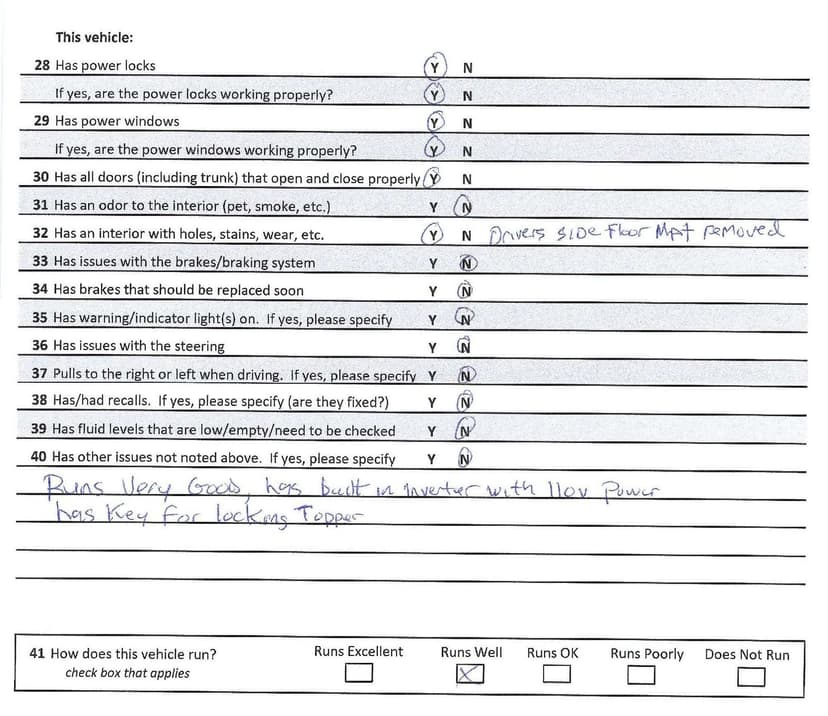 This vehicle:
28 Has power locks Y N
If yes, are the power locks working properly? Y N
29 Has power windows Y N
If yes, are the power windows working properly? Y N
30 Has all doors (including trunk) that open and close properly Y N
31 Has an odor to the interior (pet, smoke, etc.) Y N
32 Has an interior with holes, stains, wear, etc. Y N Drivers SiDe Floor Mat removed
33 Has issues with the brakes/braking system Y N
34 Has brakes that should be replaced soon Y N
35 Has warning/indicator light(s) on. If yes, please specify Y N
36 Has issues with the steering Y N
37 Pulls to the right or left when driving. If yes, please specify Y N
38 Has/had recalls. If yes, please specify (are they fixed?) Y N
39 Has fluid levels that are low/empty/need to be checked Y N
40 Has other issues not noted above. If yes, please specify Y N
Runs Very Good, has built in inverter with 110v Power
has Key For locking Topper
41 How does this vehicle run? Runs Excellent Runs Well Runs OK Runs Poorly Does Not Run
check box that applies